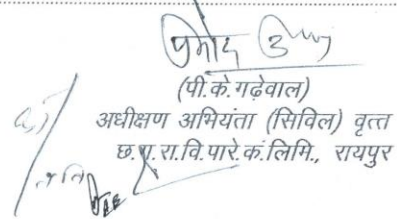 (पी.के.गढ़ेवाल)
अधीक्षण अभियंता (सिविल) वृत्त
छ.रा.वि.पारे.कं.लिमि., रायपुर